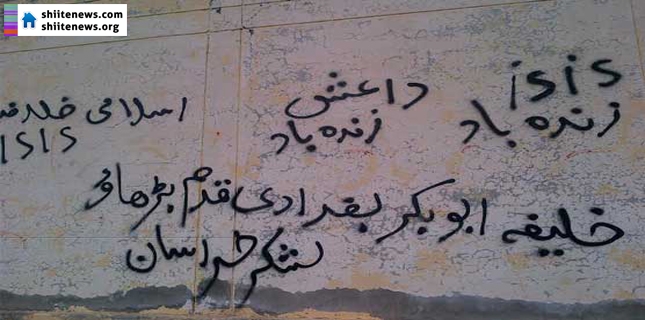 shiitenews.com
shiitenews.org
isis
زنده باد
داعش
زنده باد
اسلامی
ISIS
خلیفہ ابوبکر بغدادی قدم بڑھاؤ
لشکر خراسان